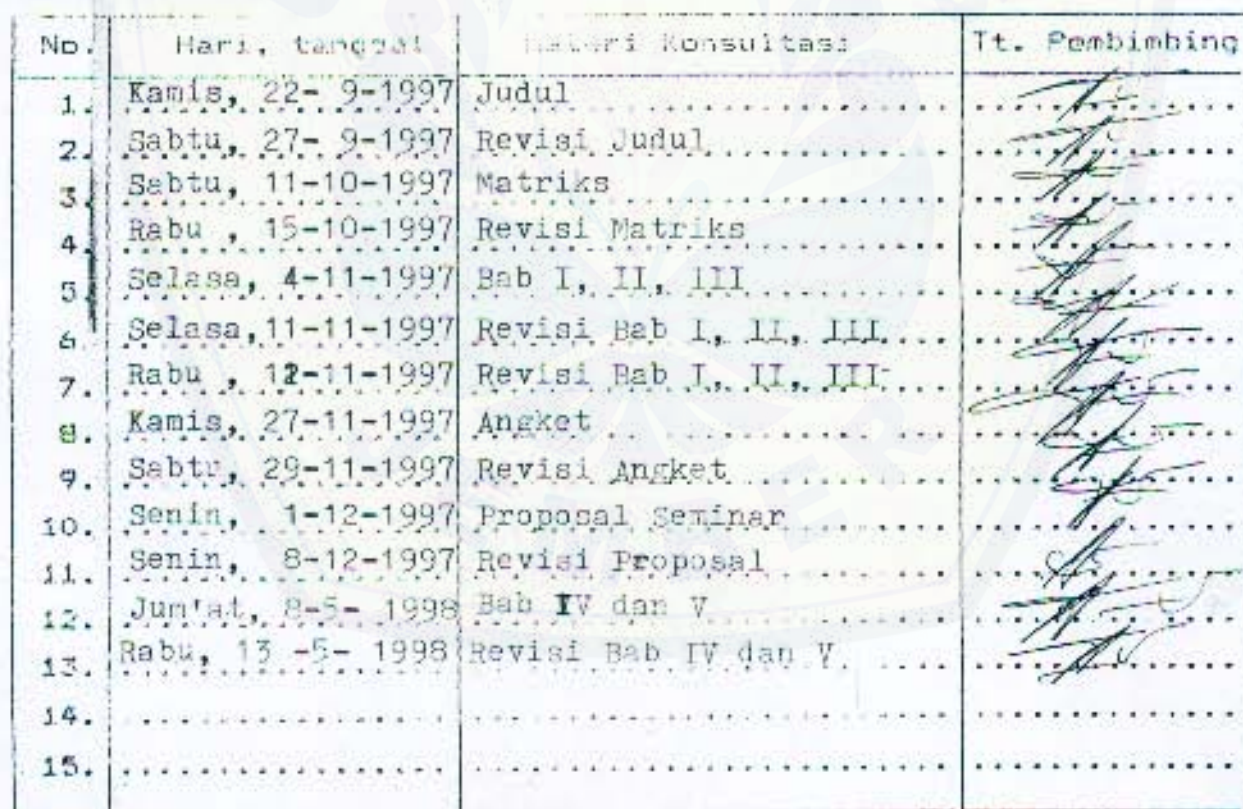 No. Hari, tanggal Materi Konsultasi Tt. Pembimbing
1. Kamis, 22- 9-1997 Judul
2. Sabtu, 27- 9-1997 Revisi Judul
3. Sabtu, 11-10-1997 Matriks
4. Rabu , 15-10-1997 Revisi Matriks
5. Selasa, 4-11-1997 Bab I, II, III
6. Selasa,11-11-1997 Revisi Bab I, II, III
7. Rabu , 12-11-1997 Revisi Bab I, II, III
8. Kamis, 27-11-1997 Angket
9. Sabtu, 29-11-1997 Revisi Angket
10. Senin, 1-12-1997 Proposal Seminar
11. Senin, 8-12-1997 Revisi Proposal
12. Jum'at, 8-5- 1998 Bab IV dan V
13. Rabu, 13 -5- 1998 Revisi Bab IV dan V
14.
15.